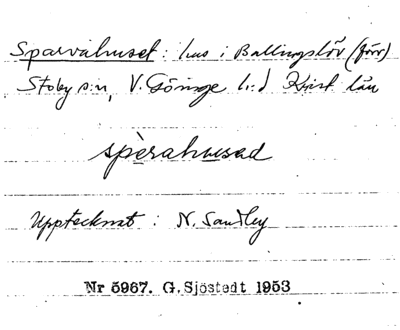 Sparvahuset : hus i Ballingslöv (förr)
Stoby s:n, V. Göinge h:d Krist län
spèrahusad
Upptecknat : N. Sandley
Nr 5967. G. Sjöstedt 1953